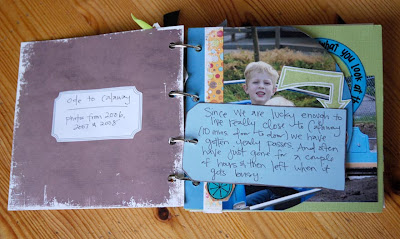 ode to calaway
photos from 2006,
2007 & 2008
what you look at
Since we are lucky enough to
live really close to calaway
(10 mins door to door) we have
gotten yearly passes. And often
have just gone for a couple
of hours & then left when it
gets busy.